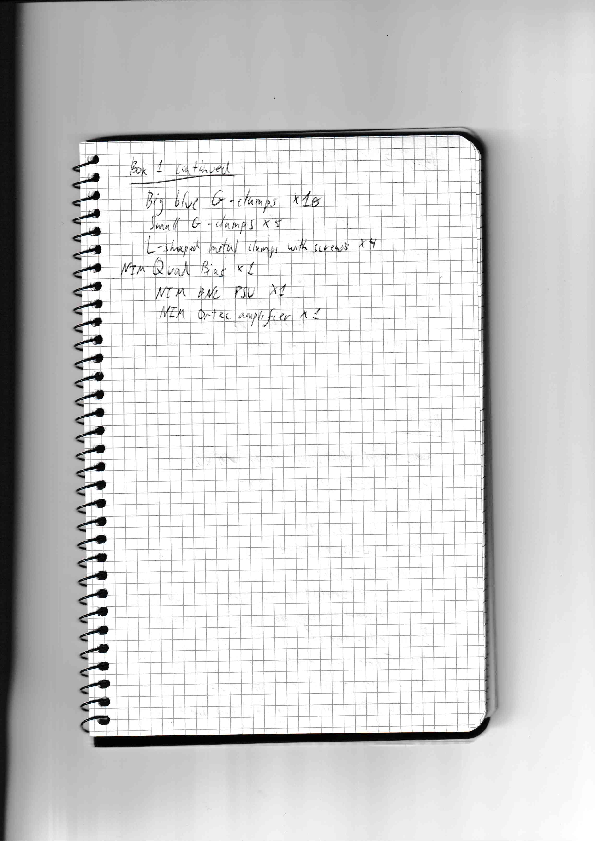 Box 1 continued
Big blue G-clamps ×10
Small G-clamps ×5
L-shaped metal clamps with screws ×4
NIM Quad Bias ×1
NIM BNC PSU ×1
NIM Ortec amplifier ×1